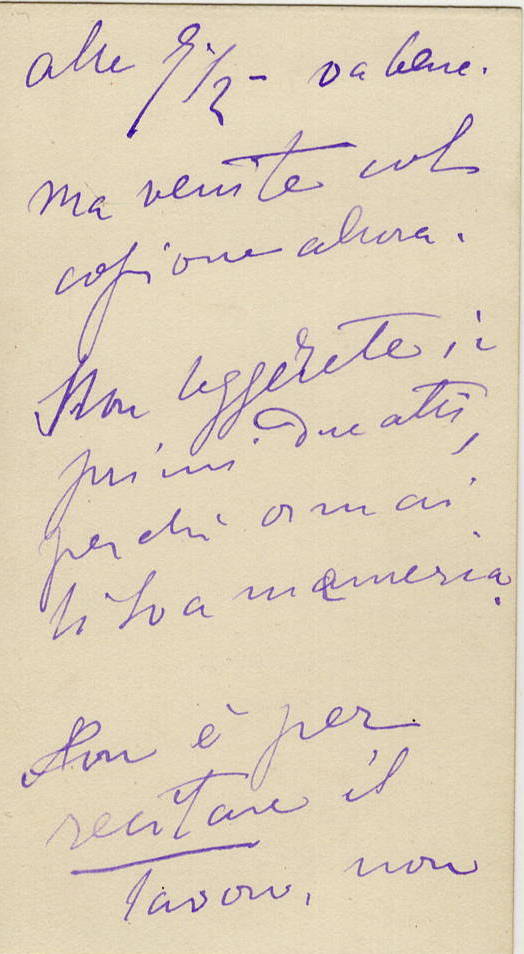 alle 9 1/2 – va bene.
ma venite col
copione allora.
Non leggerete i
primi due atti,
perchè ormai
li so a memoria.
Non è per
recitare il
lavoro, non